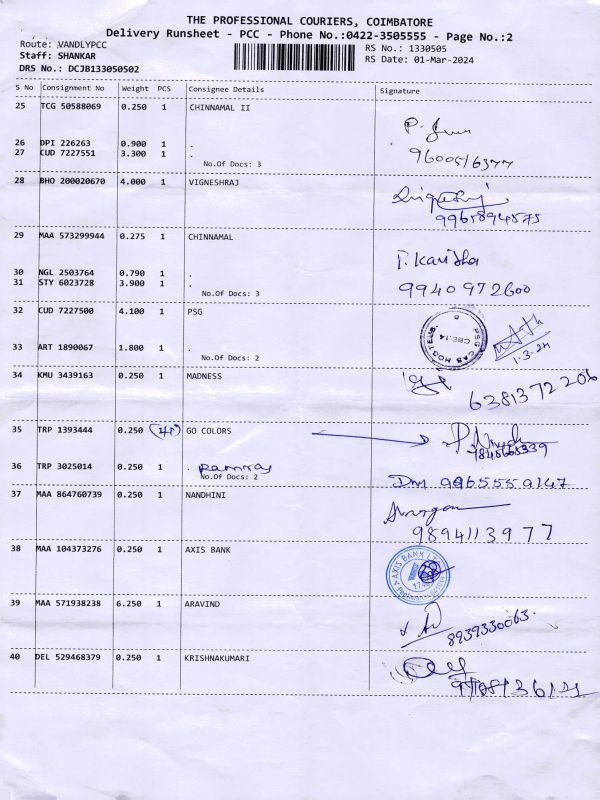 THE PROFESSIONAL COURIERS, COIMBATORE
Delivery Runsheet - PCC - Phone No.:0422-3505555 - Page No.:2
Route: VANDLYPCC
RS No.: 1330505
Staff: SHANKAR
RS Date: 01-Mar-2024
DRS No.: DCJB133050502
S No Consignment No Weight PCS Consignee Details Signature
25 TCG 50588069 0.250 1 CHINNAMAL II
26 DPI 226263 0.900 1 .
27 CUD 7227551 3.300 1 .
No.Of Docs: 3
9600516377
28 BHO 200020670 4.000 1 VIGNESHRAJ
9965894575
29 MAA 573299944 0.275 1 CHINNAMAL
T. Kavitha
30 NGL 2503764 0.790 1 .
31 STY 6023728 3.900 1 .
No.Of Docs: 3
9940972600
32 CUD 7227500 4.100 1 PSG
PSG CAS HOSTELS
CBE.14
1.3.24
33 ART 1890067 1.800 1 .
No.Of Docs: 2
34 KMU 3439163 0.250 1 MADNESS
6381372206
35 TRP 1393444 0.250 GO COLORS
36 TRP 3025014 0.250 1 . ramraj
No.Of Docs: 2
9965559147
37 MAA 864760739 0.250 1 NANDHINI
9894113977
38 MAA 104373276 0.250 1 AXIS BANK
AXIS BANK LTD
39 MAA 571938238 6.250 1 ARAVIND
8939330063.
40 DEL 529468379 0.250 1 KRISHNAKUMARI